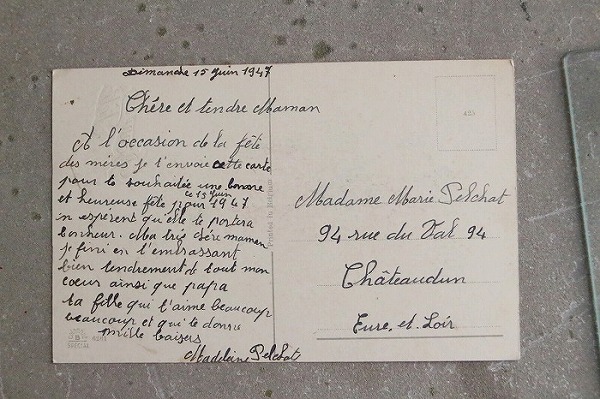 Dimanche 15 juin 1947
Chére et tendre Maman
A l'occasion de la fête
des mères je t'envoie cette carte
pour te souhaitée une bonne
ce 15 juin
et heureuse fête pour 1947
n esperent qu'elle te portera
bonheur. Ma trés chére maman
je fini en t'embrassant
bien tendrement de tout mon
coeur ainsi que papa
ta fille qui t'aime beaucoup
beaucoup et qui te donne
mille baisers
Madeleine Pelchat
Printed in Belgium
Madame Marie Pelchat
94 rue du Val 94
Châteaudun
Eure, et Loir